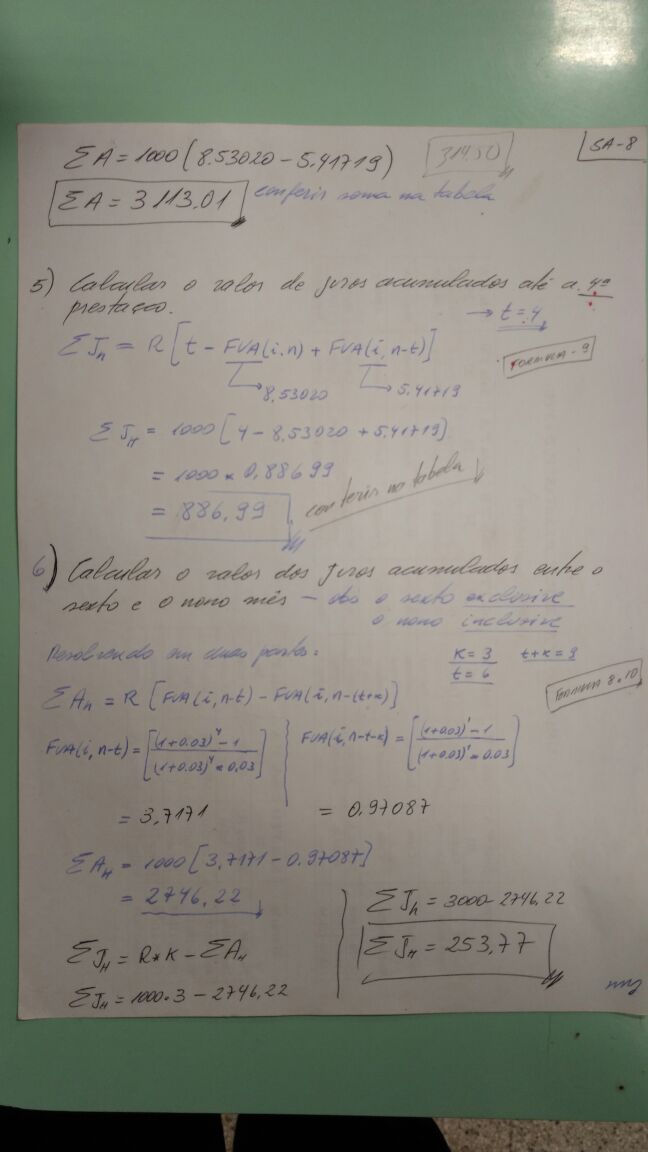 ΣA = 1000 (8.53020 - 5.41719)
SA-8
ΣA = 3113.01 conferir soma na tabela
5) Calcular o valor de juros acumulados até a 4ª
prestação.
→ t = 4
ΣJn = R [t - FVA(i,n) + FVA(i,n-t)]
FORMULA - 9
8.53020
5.41719
ΣJn = 1000 [4 - 8.53020 + 5.41719]
= 1000 * 0.88699
= 886,99 conferir na tabela
6) Calcular o valor dos juros acumulados entre o
sexto e o nono mês - o sexto exclusive
o nono inclusive
Resolvendo em duas partes:
K = 3 t+K = 9
t = 6
FORMULA 8.10
ΣAn = R [FVA(i,n-t) - FVA(i,n-(t+K)]
FVA(i,n-t) = [(1+0.03)⁴ - 1 / (1+0.03)⁴ * 0.03]
FVA(i,n-t-K) = [(1+0.03)¹ - 1 / (1+0.03)¹ * 0.03]
= 3,7171
= 0.97087
ΣAn = 1000 [3,7171 - 0.97087]
= 2746,22
ΣJn = R*K - ΣAn
ΣJn = 1000.3 - 2746,22
ΣJn = 3000 - 2746,22
ΣJn = 253,77